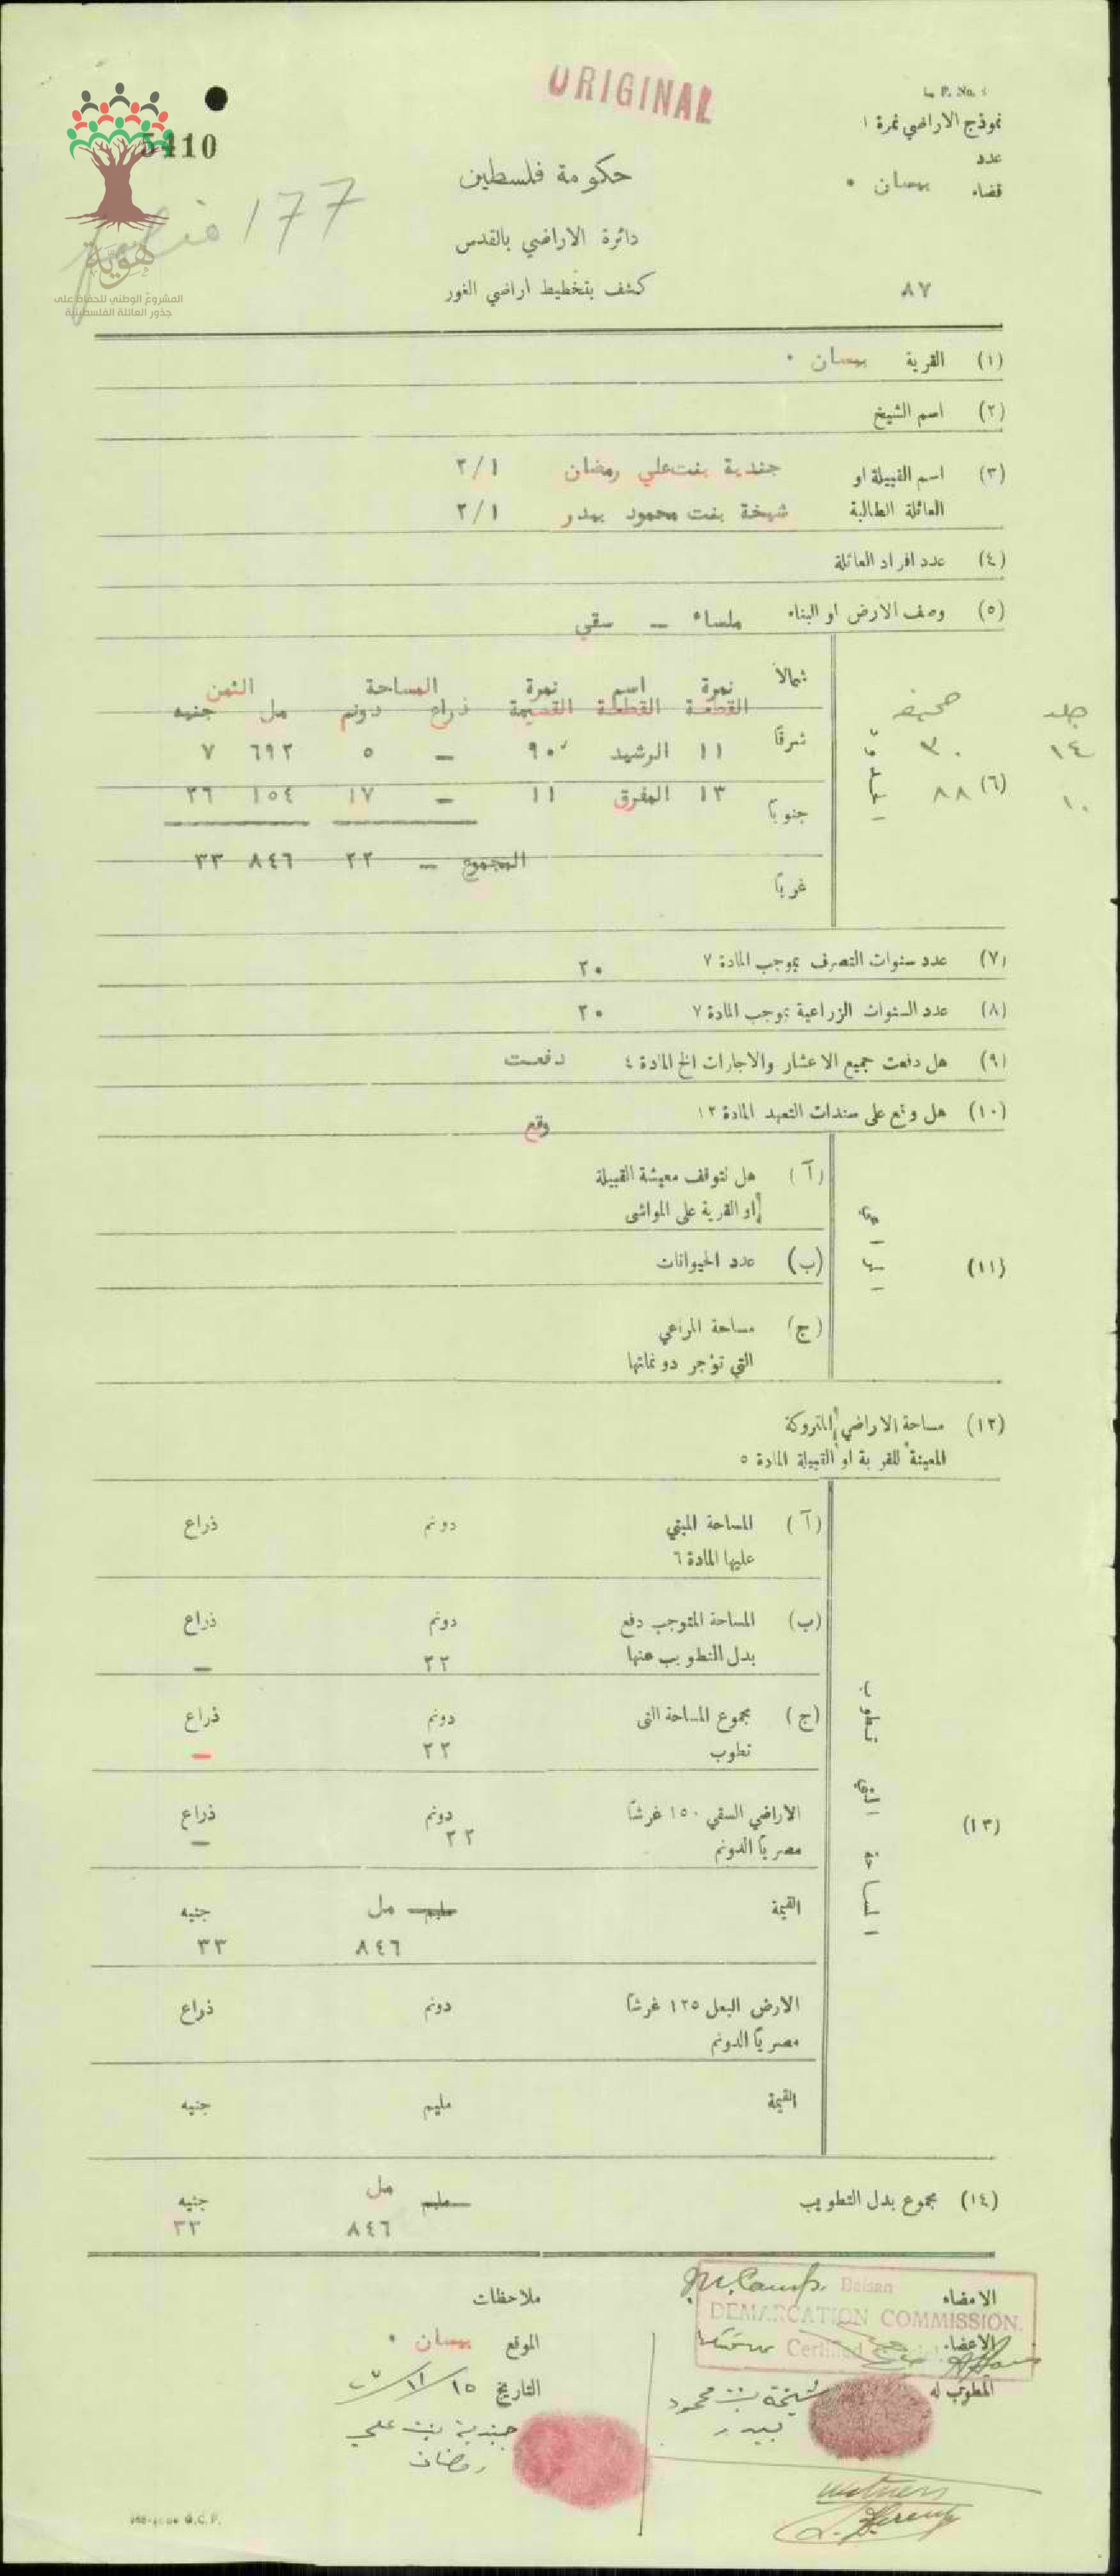 ORIGINAL
L. P. No.
نموذج الاراضي نمرة ١
5410
عدد
قضاء بيسان .
حكومة فلسطين
177
دائرة الاراضي بالقدس
هوية
المشروع الوطني للحفاظ على
جذور العائلة الفلسطينية
كشف بتخطيط اراضي الغور
٨٧
(١) القرية بيسان .
(٢) اسم الشيخ
(٣) اسم القبيلة او جندية بنت علي رمضان ٢/١
العائلة الطالبة شيخة بنت محمود بيدر ٢/١
(٤) عدد افراد العائلة
(٥) وصف الارض او البناء ملساء — سقي
شمالاً نمرة اسم نمرة المساحة الثمن
القطعة القطعة القسيمة ذراع دونم مل جنيه
جلد صحيفة
شرقاً ١١ الرشيد ٩٠ — ٥ ٦٩٢ ٧
١٤ ٣٠
١٠ ٨٨ (٦)
جنوباً ١٣ المفرق ١١ — ١٧ ١٥٤ ٢٦
المجموع — ٢٢ ٨٤٦ ٣٣
غرباً
(٧) عدد سنوات التصرف بموجب المادة ٧ ٢٠
(٨) عدد السنوات الزراعية بموجب المادة ٧ ٢٠
(٩) هل دفعت جميع الاعشار والاجارات الخ المادة ٤ دفعت
(١٠) هل وقع على سندات التعهد المادة ١٢ وقع
(آ) هل تتوقف معيشة القبيلة
او القرية على المواشي
(١١)
(ب) عدد الحيوانات
(ج) مساحة المراعي
التي تؤجر دونماتها
(١٢) مساحة الاراضي المتروكة
المعينة للقرية او القبيلة المادة ٥
(آ) المساحة المبني دونم ذراع
عليها المادة ٦
(ب) المساحة المتوجب دفع دونم ذراع
بدل التطويب عنها ٢٢ —
(ج) مجموع المساحة التي دونم ذراع
تطوب ٢٢ —
(١٣)
المساحة التي تطوب
الاراضي السقي ١٥٠ غرشاً دونم ذراع
مصرياً الدونم ٢٢ —
القيمة مليم مل جنيه
٨٤٦ ٣٣
الارض البعل ١٢٥ غرشاً دونم ذراع
مصرياً الدونم
القيمة مليم جنيه
(١٤) مجموع بدل التطويب مليم مل جنيه
٨٤٦ ٣٣
الامضاء
Beisan
DEMARCATION COMMISSION.
Certified
الاعضاء
المطوب له
شيخة بنت محمود
بيدر
ملاحظات
الموقع بيسان .
التاريخ ١٥/١١/٢٧
جندية بنت علي
رمضان
witness